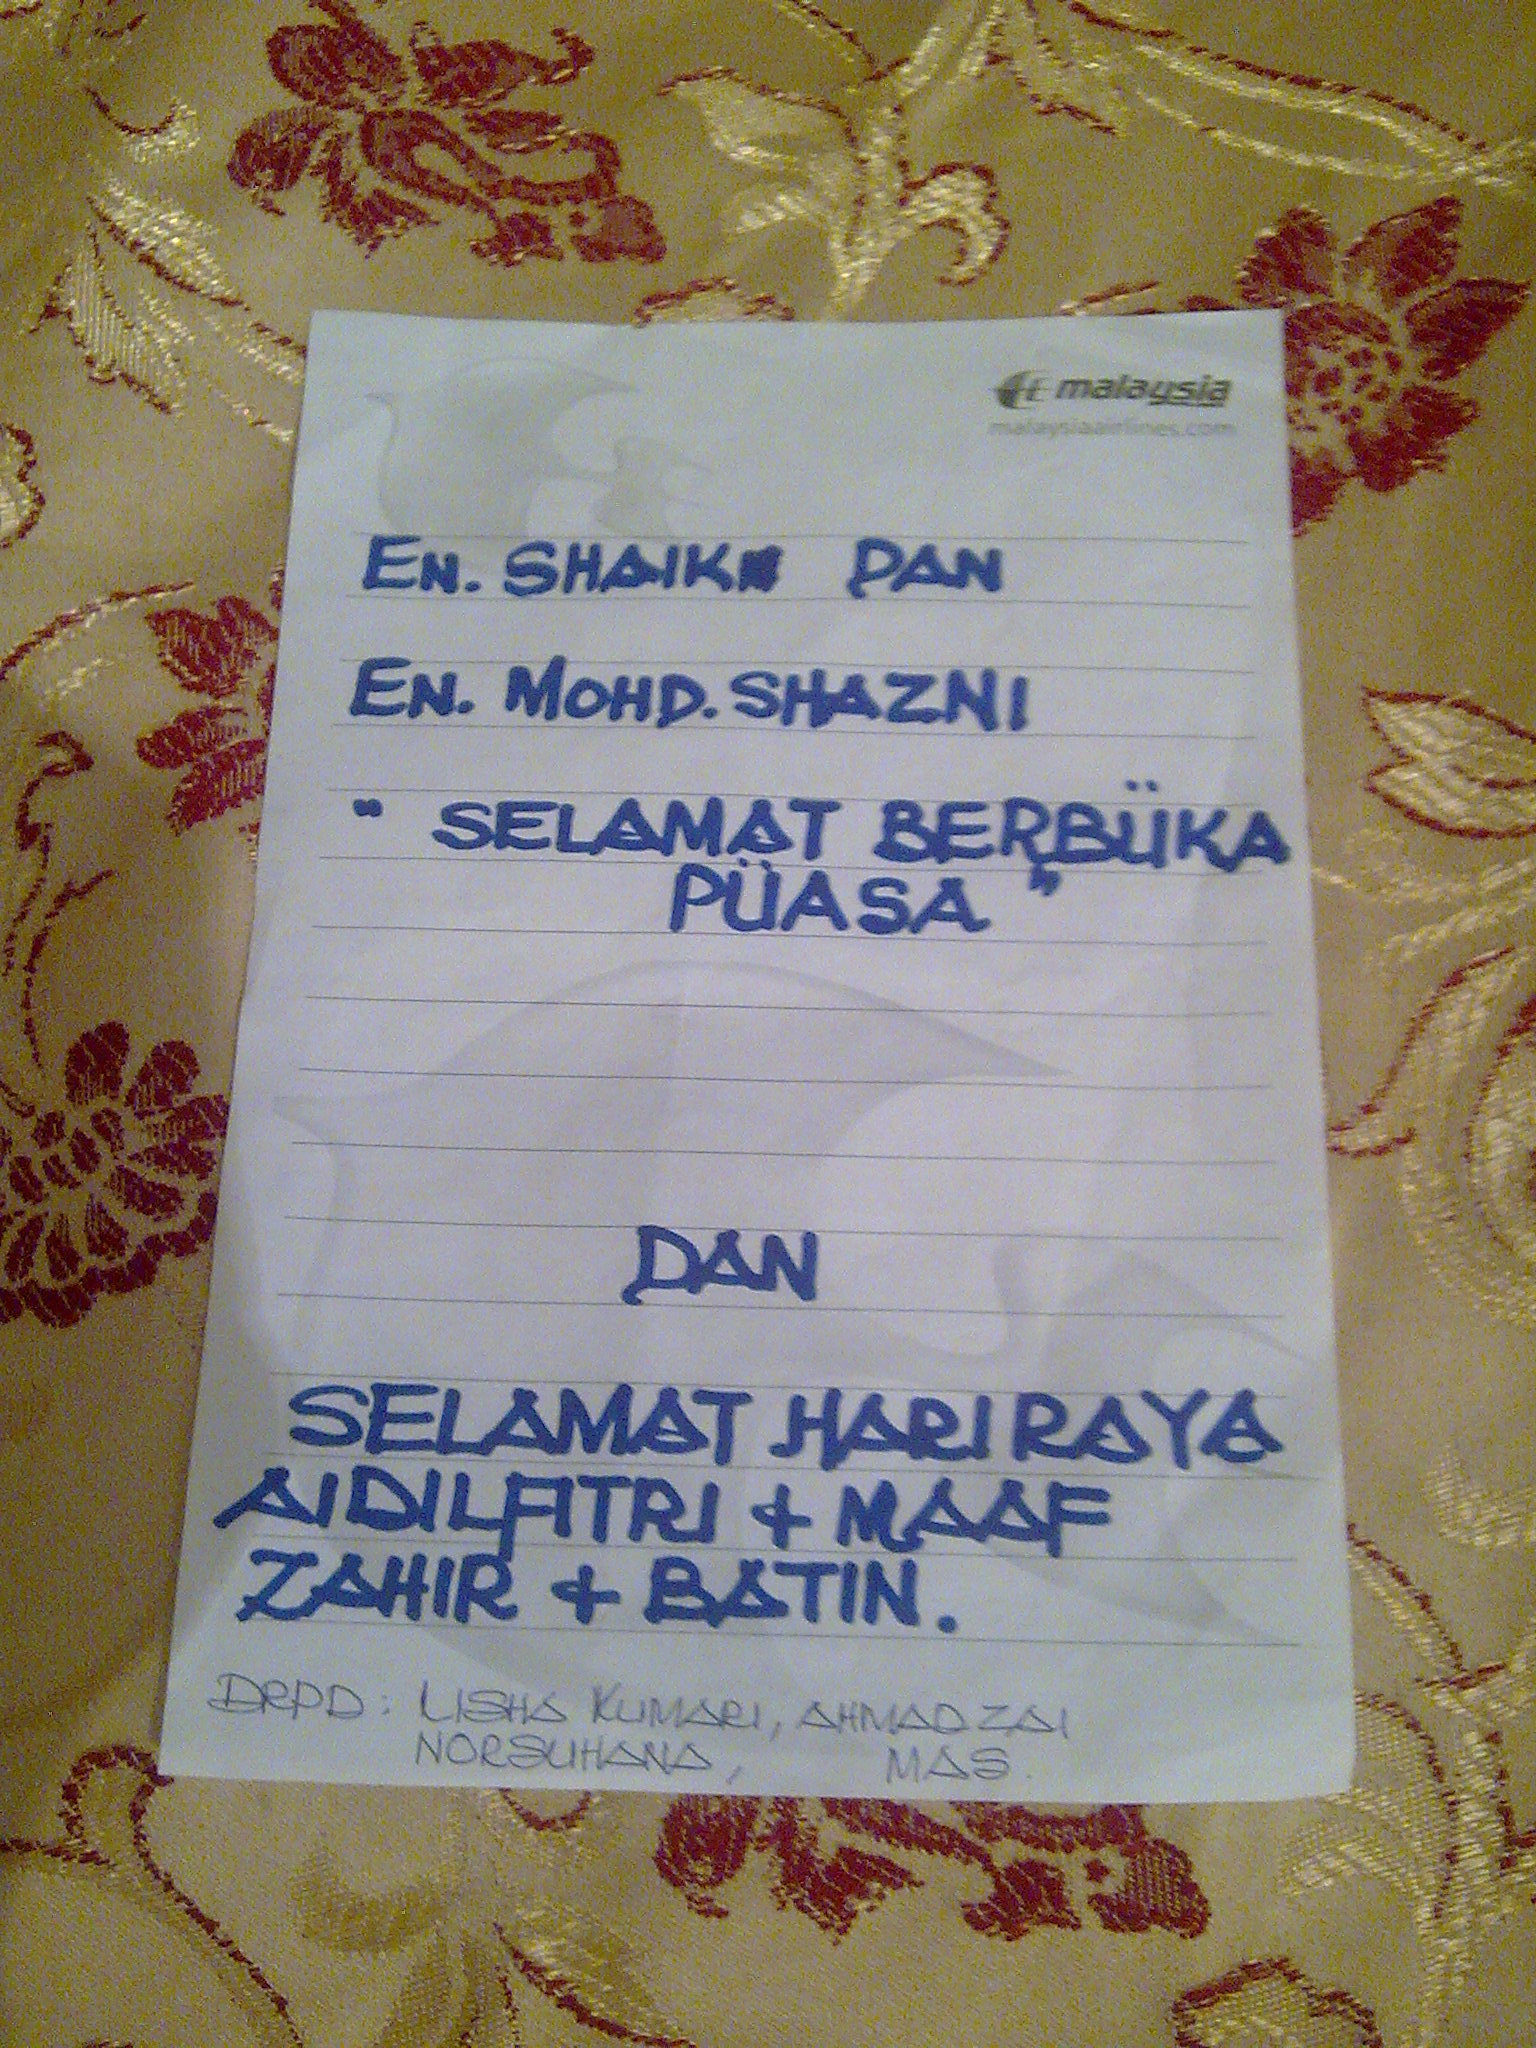 malaysia
malaysiaairlines.com
EN. SHAIK DAN
EN. MOHD. SHAZNI
" SELAMAT BERBÜKA
PÜASA "
DAN
SELAMAT HARI RAYA
AIDILFITRI & MAAF
ZAHIR & BATIN.
DRPD: LISHA KUMARI, AHMADZAI
NORSUHANA, MAS.